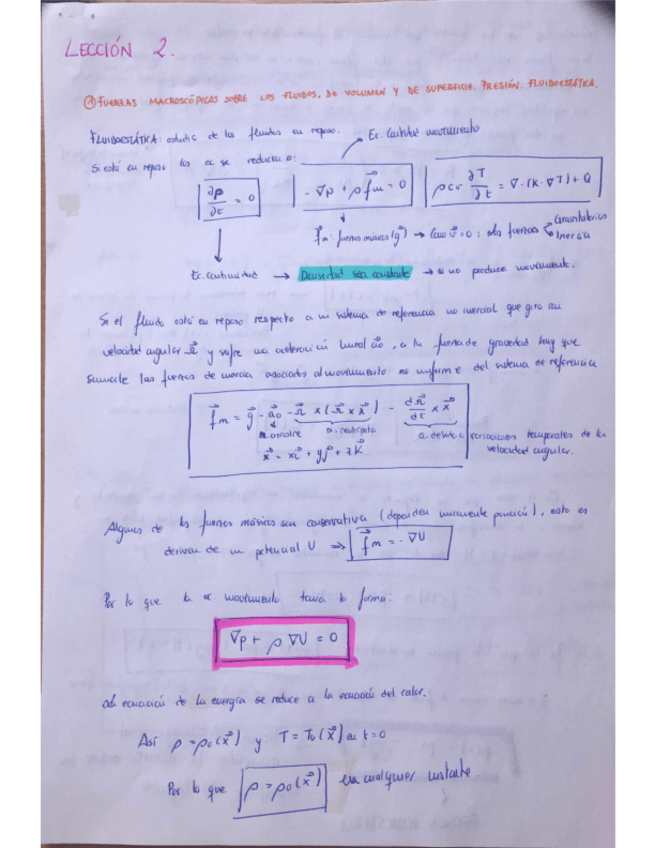 LECCIÓN 2.
① FUERZAS MACROSCÓPICAS SOBRE LOS FLUIDOS, DE VOLUMEN Y DE SUPERFICIE. PRESIÓN. FLUIDOESTÁTICA.
FLUIDOESTÁTICA: estudio de los fluidos en reposo.
Ec. Cantidad movimiento
Si está en reposo las ec se reducen a:
∂ρ/∂t = 0
-∇p + ρ f⃗m = 0
ρcv ∂T/∂t = ∇·(K·∇T) + Q
f⃗m: fuerzas másicas (g⃗) → Como v⃗=0: sólo fuerzas
Gravitatorias
Inercia
Ec. Continuidad → Densidad sea constante → si no produce movimiento.
Si el fluido está en reposo respecto a un sistema de referencia no inercial que gira con
velocidad angular Ω⃗ y sufre una aceleración lineal a⃗o, a la fuerza de gravedad hay que
sumarle las fuerzas de inercia asociadas al movimiento no uniforme del sistema de referencia
f⃗m = g⃗ - a⃗o - Ω⃗ x (Ω⃗ x x⃗) - dΩ⃗/dt x x⃗
a. arrastre
a. centrípeta
a. debida a variaciones temporales de la
velocidad angular.
x⃗ = xi⃗ + yj⃗ + zk⃗
Algunas de las fuerzas másicas son conservativa (dependen unicamente posición), esto es
derivan de un potencial U ⇒ f⃗m = -∇U
Por lo que la ec. movimiento tendrá la forma:
∇p + ρ ∇U = 0
La ecuación de la energía se reduce a la ecuación del calor.
Así ρ = ρo(x⃗) y T = To(x⃗) en t=0
Por lo que ρ = ρo(x⃗) en cualquier instante